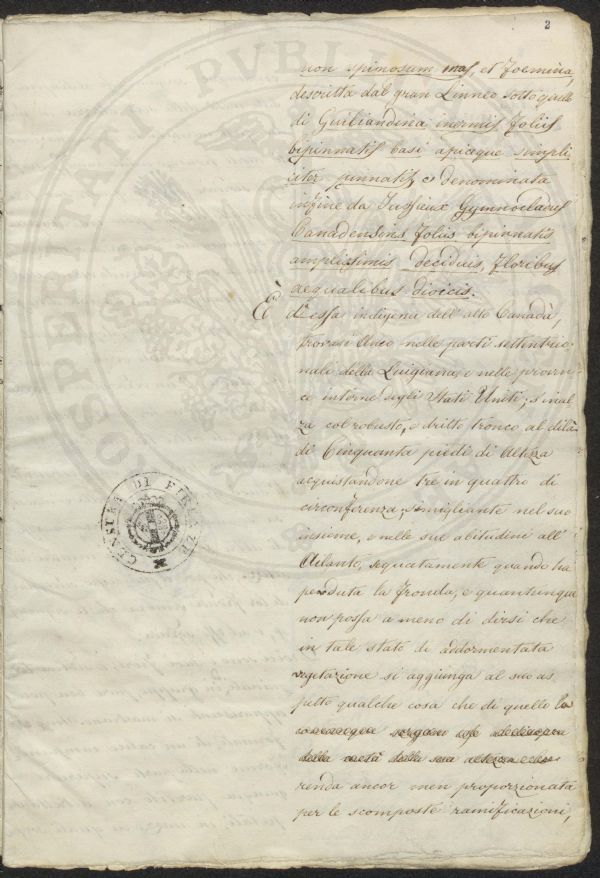 2
non spinosum mas, et foemina
descritta dal gran Linneo sotto quello
di Guilandina inermis foliis
bipinnatis basi apiceque simpli
citer pinnatis, e denominata
infine da Jussieux Gymnocladus
Canadensis foliis bipinnatis
amplissimis deciduis, floribus
aequalibus dioicis.
È dessa indigena dell' alto Canadà,
trovasi anco nelle parti settentrio
nali della Luigiana, e nelle provin
ce interne degli Stati Uniti; s'inal
za col robusto, e dritto tronco al di là
di Cinquanta piedi di Altezza
acquistandone tre in quattro di
circonferenza; somigliante nel suo
insieme, e nelle sue abitudini all'
Ailanto, seguatamente quando ha
perduta la fronda, e quantunque
non possa a meno di dirsi che
in tale stato di addormentata
vegetazione si aggiunga al suo as
petto qualche cosa che di quello lo
sorgano
della metà della sua altezza
renda ancor men proporzionata
per le scomposte ramificazioni,
CENSURA DI FIRENZE
PROSPERITATI PUBLI